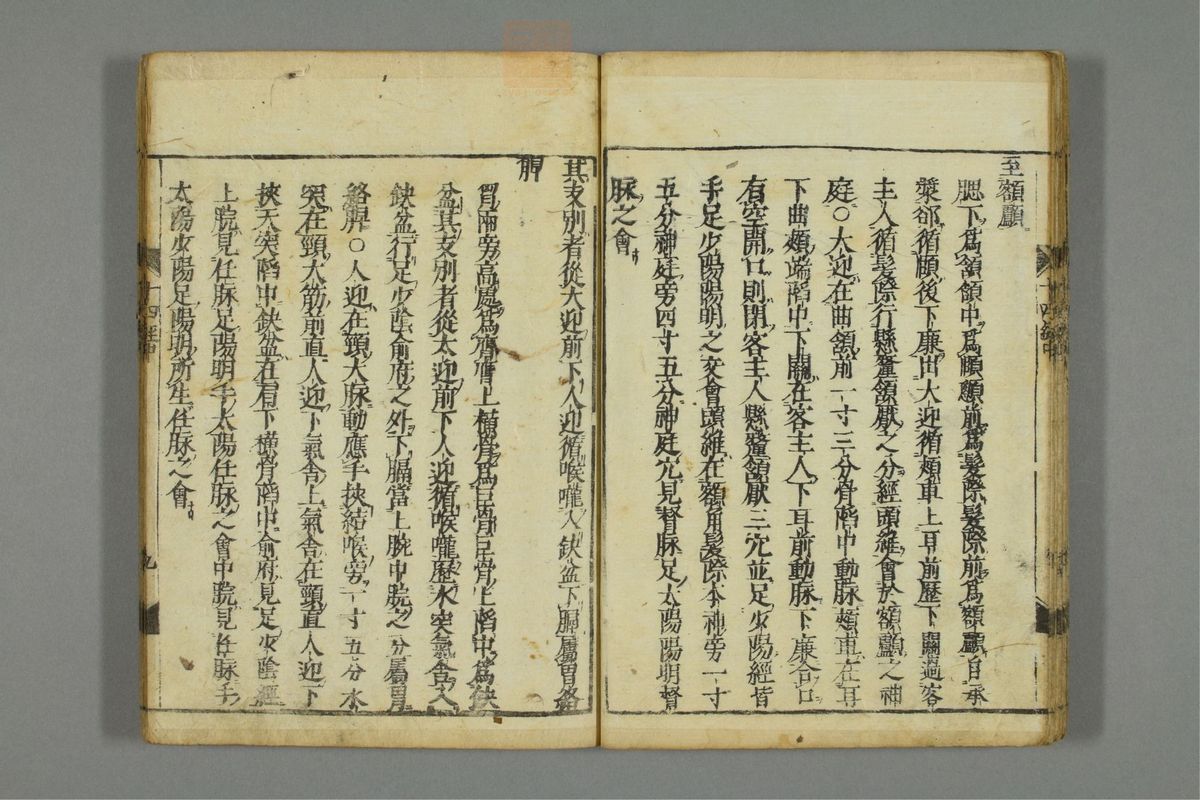 至額顱
腮下爲頷頷中爲頤顖前爲髮際髮際前爲額顱自承
漿郤循頤後下廉出大迎循頰車上耳前歷下關過客
主人循髮際行懸釐頷厭之分經頭維會於額顱之神
庭○大迎在曲頷前一寸三分骨陷中動脉頰車在耳
下曲頰端陷中下關在客主人下耳前動脉下廉合口
有空開口則閉客主人懸釐頷厭三穴並足少陽經皆
手足少陽陽明之交會頭維在額角髮際本神旁一寸
五分神庭旁四寸五分神庭穴見督脉足太陽陽明督
脉之會
其支別者從大迎前下人迎循喉嚨入缺盆下膈屬胃絡
脾
胃兩旁高處爲膺膺上橫骨爲巨骨巨骨上陷中爲缺
盆其支別者從大迎前下人迎循喉嚨歷水突氣舍入
缺盆行足少陰俞府之外下膈當上脘中脘之分屬胃
絡脾○人迎在頸大脉動應手挾結喉旁一寸五分水
突在頸大筋前直人迎下氣舍上氣舍在頸直人迎下
挾天突陷中缺盆在肩下橫骨陷中俞府見足少陰經
上脘見任脉足陽明手太陽任脉之會中脘見任脉手
太陽少陽足陽明所生任脉之會
十四經中
九